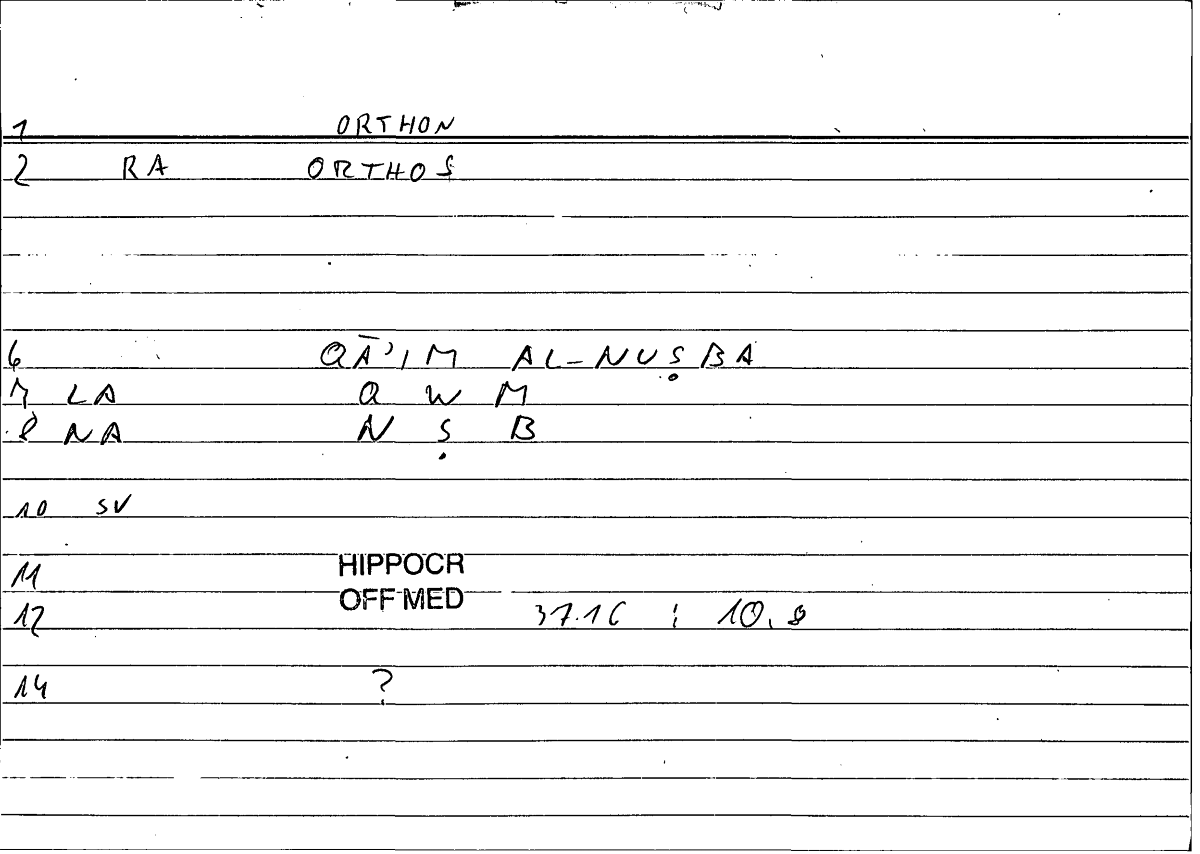 1 ORTHON
2 RA ORTHOS
6 QĀ'IM AL-NUṢBA
7 LA Q W M
8 NA N Ṣ B
10 SV
11 HIPPOCR
12 OFF MED 37.16 ; 10,8
14 ?